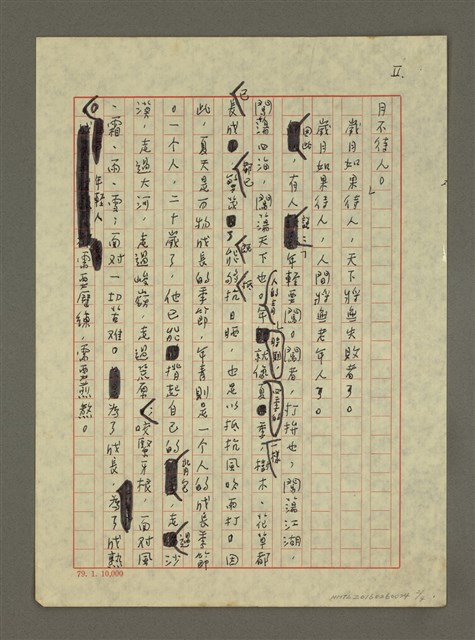 II.
月不待人。」
歲月如果待人，天下將無失敗者了。
歲月如果待人，人間將無老年人了。
因此，有人說：「年輕要闖。闖者，打拚也，闖蕩江湖，
闖蕩四海，闖蕩天下也。」人的青年時期，就像夏季，四季的樹木、花草都一樣
已長成，繁茂了，都已能夠抵抗日晒，也足以抵抗風吹雨打。因
此，夏天是萬物成長的季節，年青則是一個人的成長季節
。一個人，二十歲了，他已能揹起自己的背包，走過沙
漠，走過大河，走過峻嶺，走過荒原，咬緊牙根，面對風
、霜、雨、雪；面對一切苦難。為了成長，為了成熟
。年輕人需要歷練，需要煎熬。
79. 1. 10,000